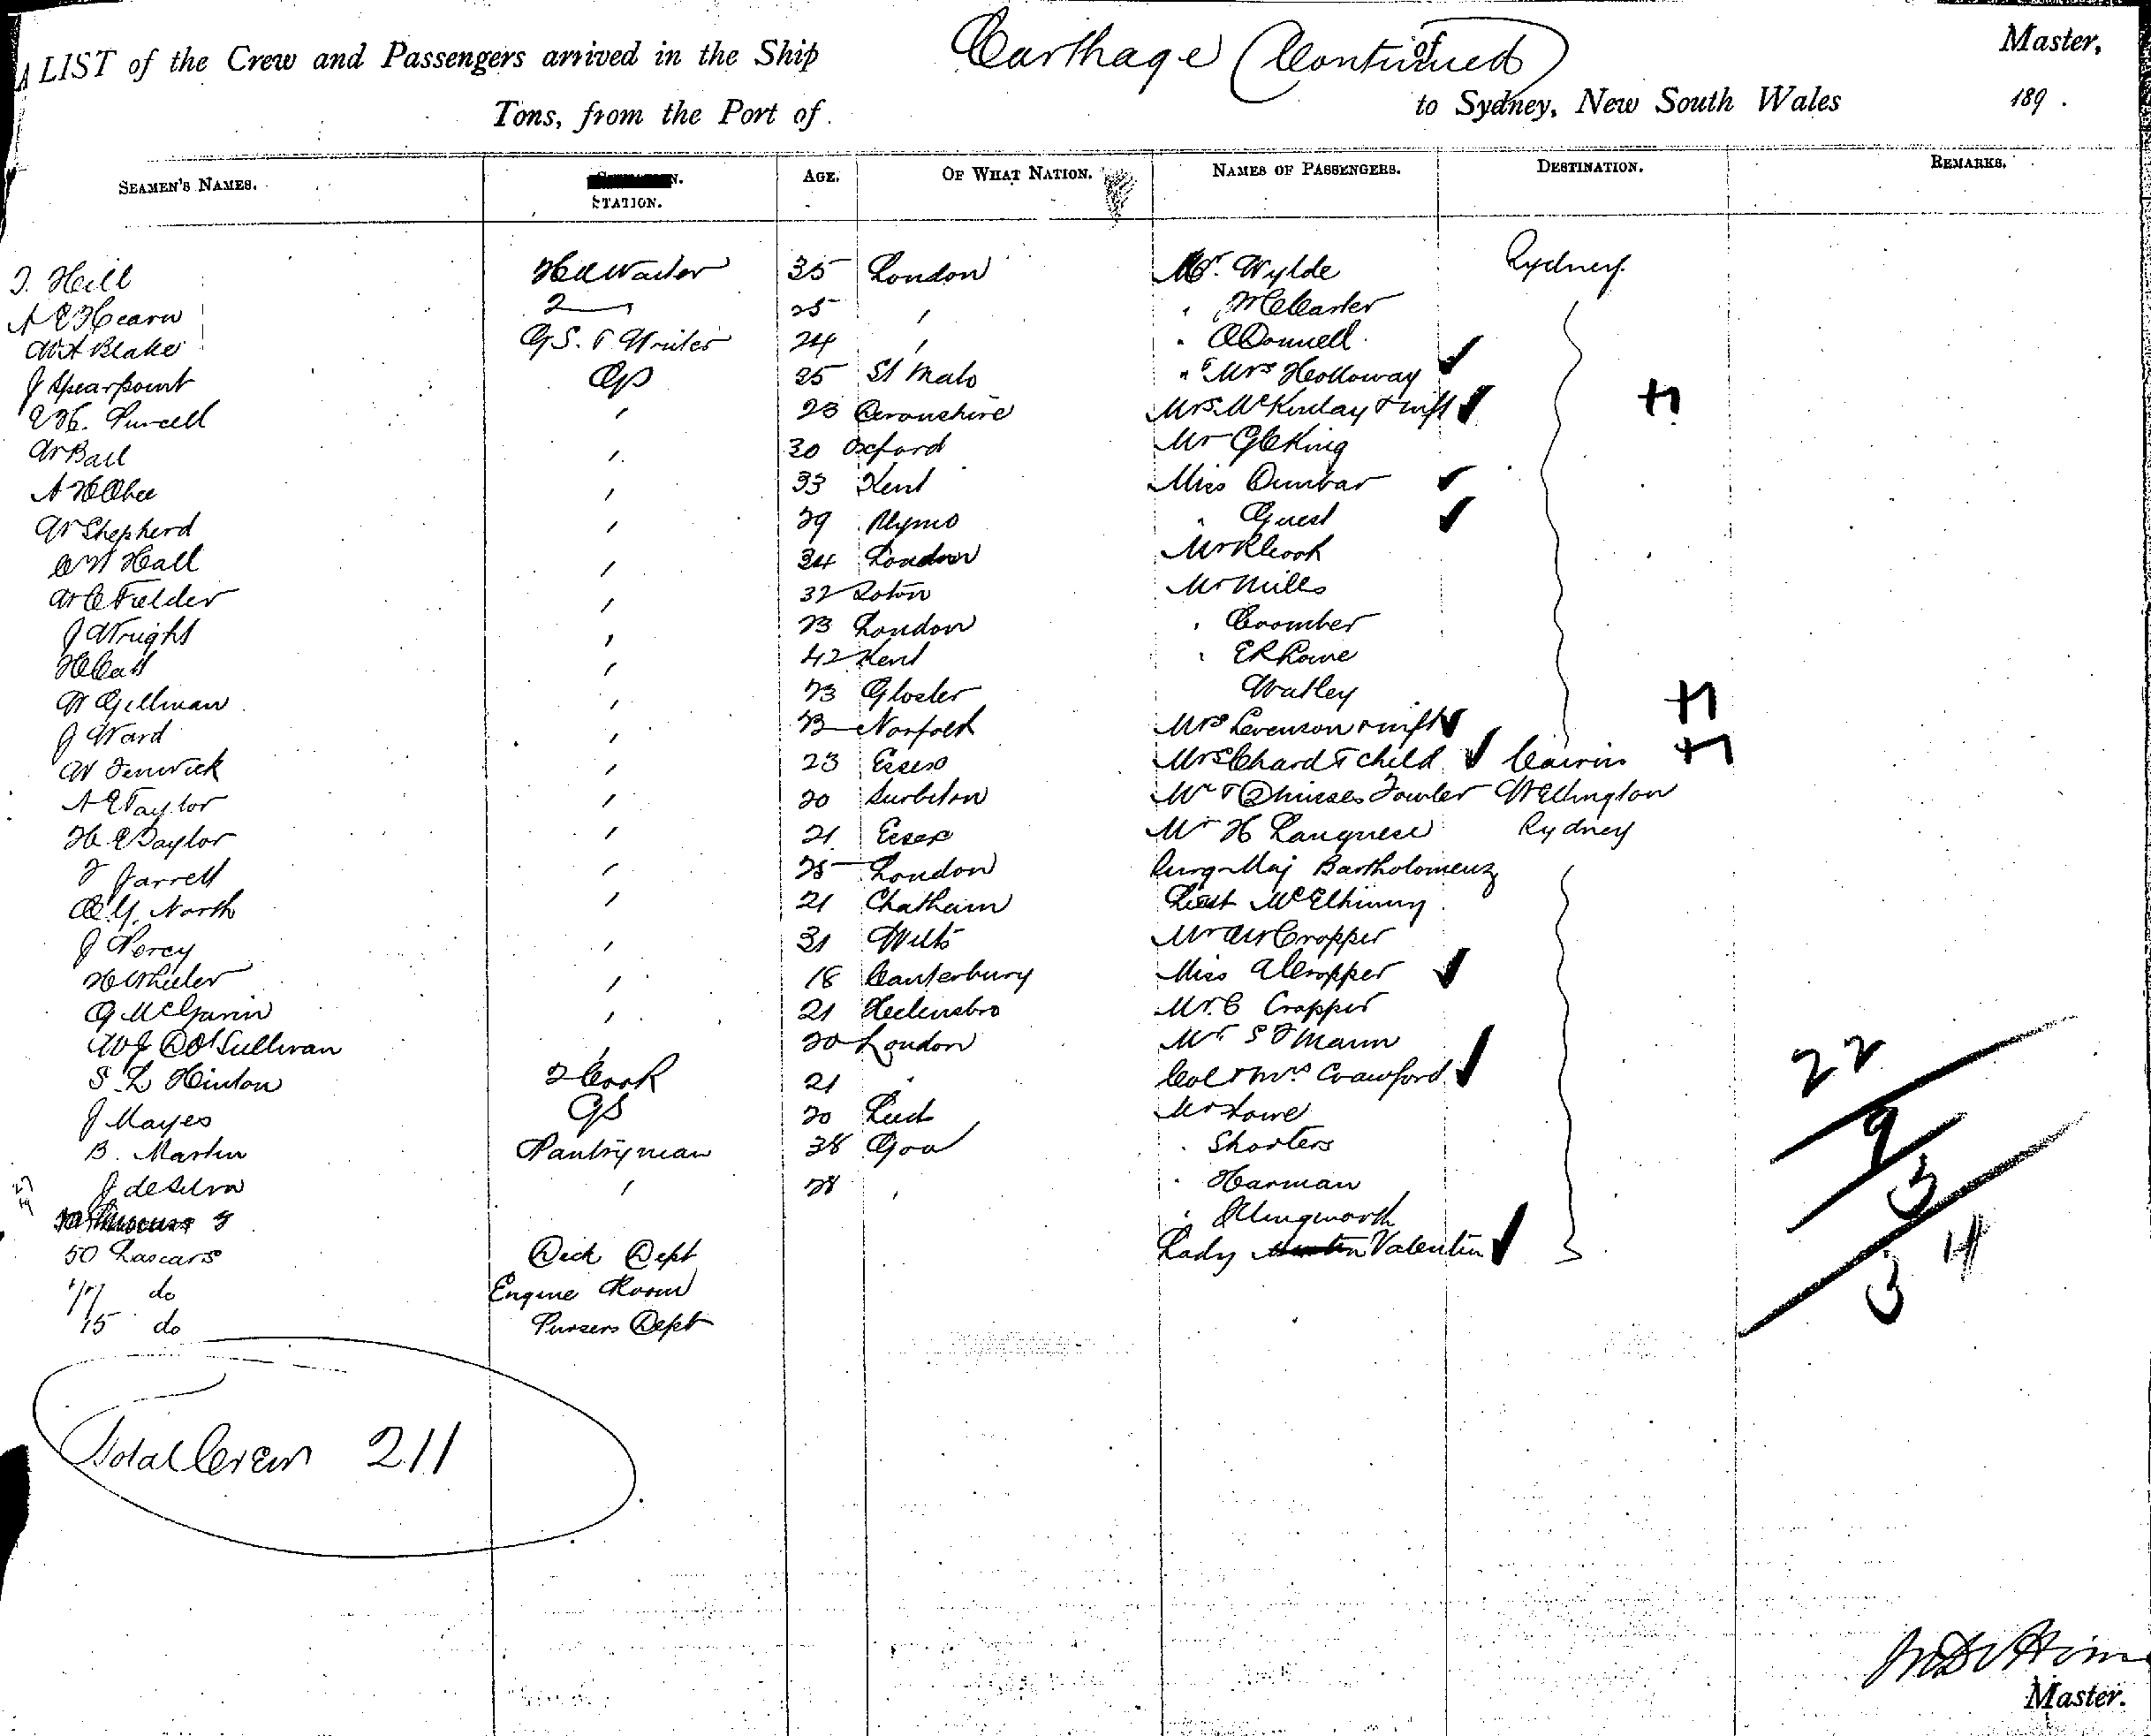 A LIST of the Crew and Passengers arrived in the Ship Carthage (Continued) of Master,
Tons, from the Port of to Sydney, New South Wales 189 .
SEAMEN'S NAMES. STATION. AGE. OF WHAT NATION. NAMES OF PASSENGERS. DESTINATION. REMARKS.
J. Hill Hd Waiter 35 London Mr. Wylde Sydney
A E Hearn 2 25 , " McCarter
W A Blake G.S. & Writer 24 , " O'Donnell
J Spearpoint GS 25 St Malo " & Mrs Holloway ✓
E H. Purcell , 23 Devonshire Mrs. McKinlay & inft ✓ +1
W Ball , 30 Oxford Mr G E King
A H Obee , 33 Kent Miss Dunbar ✓
W Shepherd , 29 Plymo " Guest ✓
C W Hall , 34 London Mr R Cook
W C Fielder , 32 Soton Mr Mills
J Wright , 23 London " Coomber
H Catt , 42 Kent " E R Rowe
W Gillman , 23 Gloster Watley
J Ward , 23 Norfolk Mrs Levenson & inft ✓ +1
W Fenwick , 23 Essex Mrs Chard & child ✓ Cairns +1
A E Taylor , 20 Surbiton Mr & 2 Misses Fowler Wellington
H. E Taylor , 21 Essex Mr H Langnese Sydney
J Jarrett , 25 London Surg-Maj Bartholomeusz
A. G. North , 21 Chatham Lieut McElhinny
J Percy , 31 Wilts Mr W Cropper
H Wheeler , 18 Canterbury Miss A Cropper ✓
G McGavin , 21 Helensbro Mr. C Cropper
W J D O'Sullivan , 20 London Mr S F Mann
S. L Hinton 2 Cook 21 " Col & Mrs Crawford ✓ 22
J Mayes GS 20 Mr Lowe 9
B. Martin Pantryman 38 Goa " Shorters
J de Silva , 28 , " Harman 3
" Illingworth
50 Lascars Deck Dept Lady Valentin ✓ 34
77 do Engine Room
15 do Pursers Dept
Total Crew 211
Master.